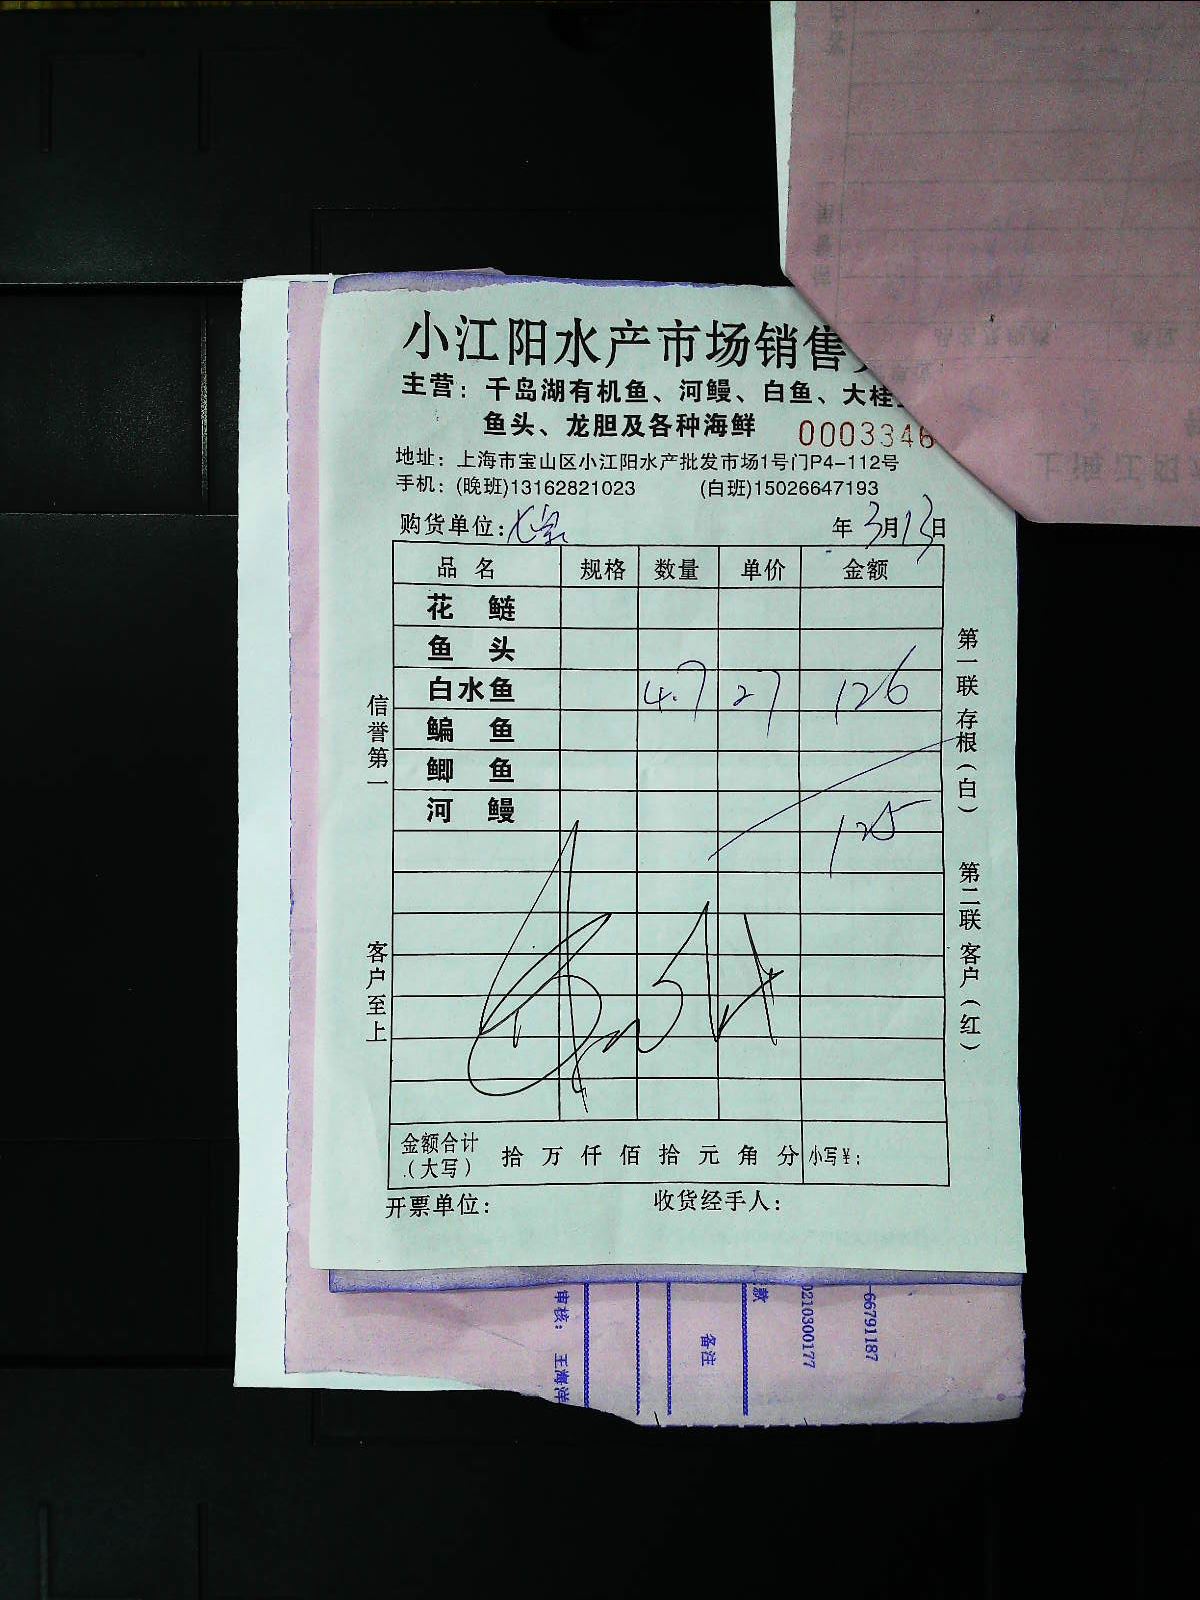 小江阳水产市场销售
主营：千岛湖有机鱼、河鳗、白鱼、大桂
鱼头、龙胆及各种海鲜
0003346
地址：上海市宝山区小江阳水产批发市场1号门P4-112号
手机：(晚班)13162821023 (白班)15026647193
购货单位： 年3月13日
品名 规格 数量 单价 金额
花鲢
鱼头
白水鱼 4.7 27 126
鳊鱼
鲫鱼
河鳗 125
金额合计（大写） 拾万仟佰拾元角分 小写¥：
开票单位： 收货经手人：
信誉第一
客户至上
第一联 存根（白）
第二联 客户（红）
审核： 王海洋
备注
款
0210300177
-66791187